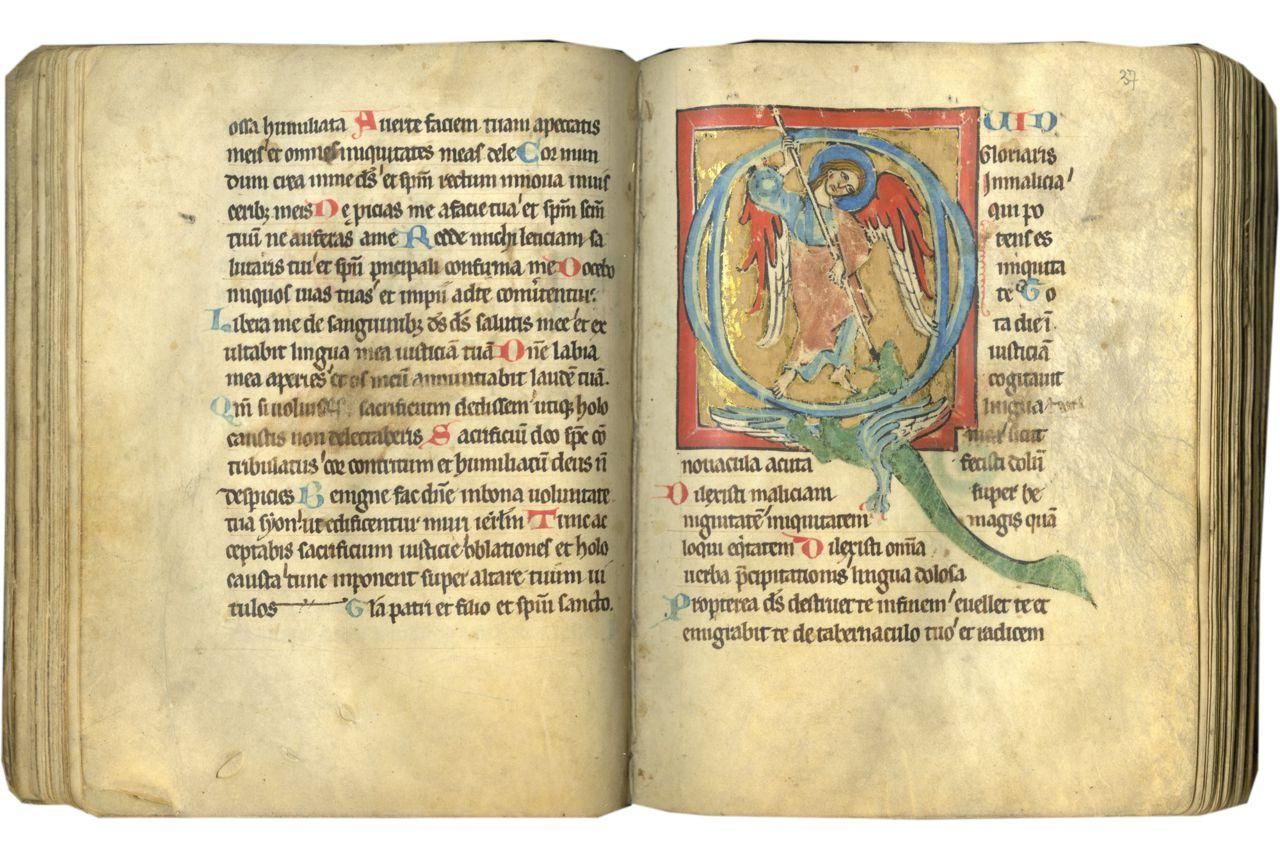 ossa humiliata Auerte faciem tuam apeccatis
meis' et omnes iniquitates meas dele Cor mun
dum crea inme ds' et spm rectum innoua inuis
ceribz meis Ne picias me afacie tua' et spm scm
tuum ne auferas ame Redde michi leticiam sa
lutaris tui' et spu pncipali confirma me Docebo
iniquos uias tuas' et impii adte conuertentur.
Libera me de sanguinibz ds ds salutis mee' et ex
ultabit lingua mea iusticiam tuam Dne labia
mea aperies' et os meum annuntiabit laudem tuam.
Qm si uoluisses sacrificium dedissem' utiqz holo
caustis non delectaberis Sacrificium deo spc con
tribulatus' cor contritum et humiliatum deus n
despicies Benigne fac dne inbona uoluntate
tua syon' ut edificentur muri ierlm Tunc ac
ceptabis sacrificium iusticie' oblationes et holo
causta' tunc inponent super altare tuum ui
tulos Gla patri et filio et spui sancto.
37
QUID
Gloriaris
Inmalicia'
qui po
tens es
iniquita
te To
ta die i
iusticiam
cogitauit
lingua
fecisti dolum
nouacula acuta
Dilexisti maliciam super be
nignitate' iniquitatem magis quam
loqui eqitatem Dilexisti omnia
uerba pcipitationis' lingua dolosa
Propterea ds destruet te infinem' euellet te et
emigrabit te de tabernaculo tuo' et radicem